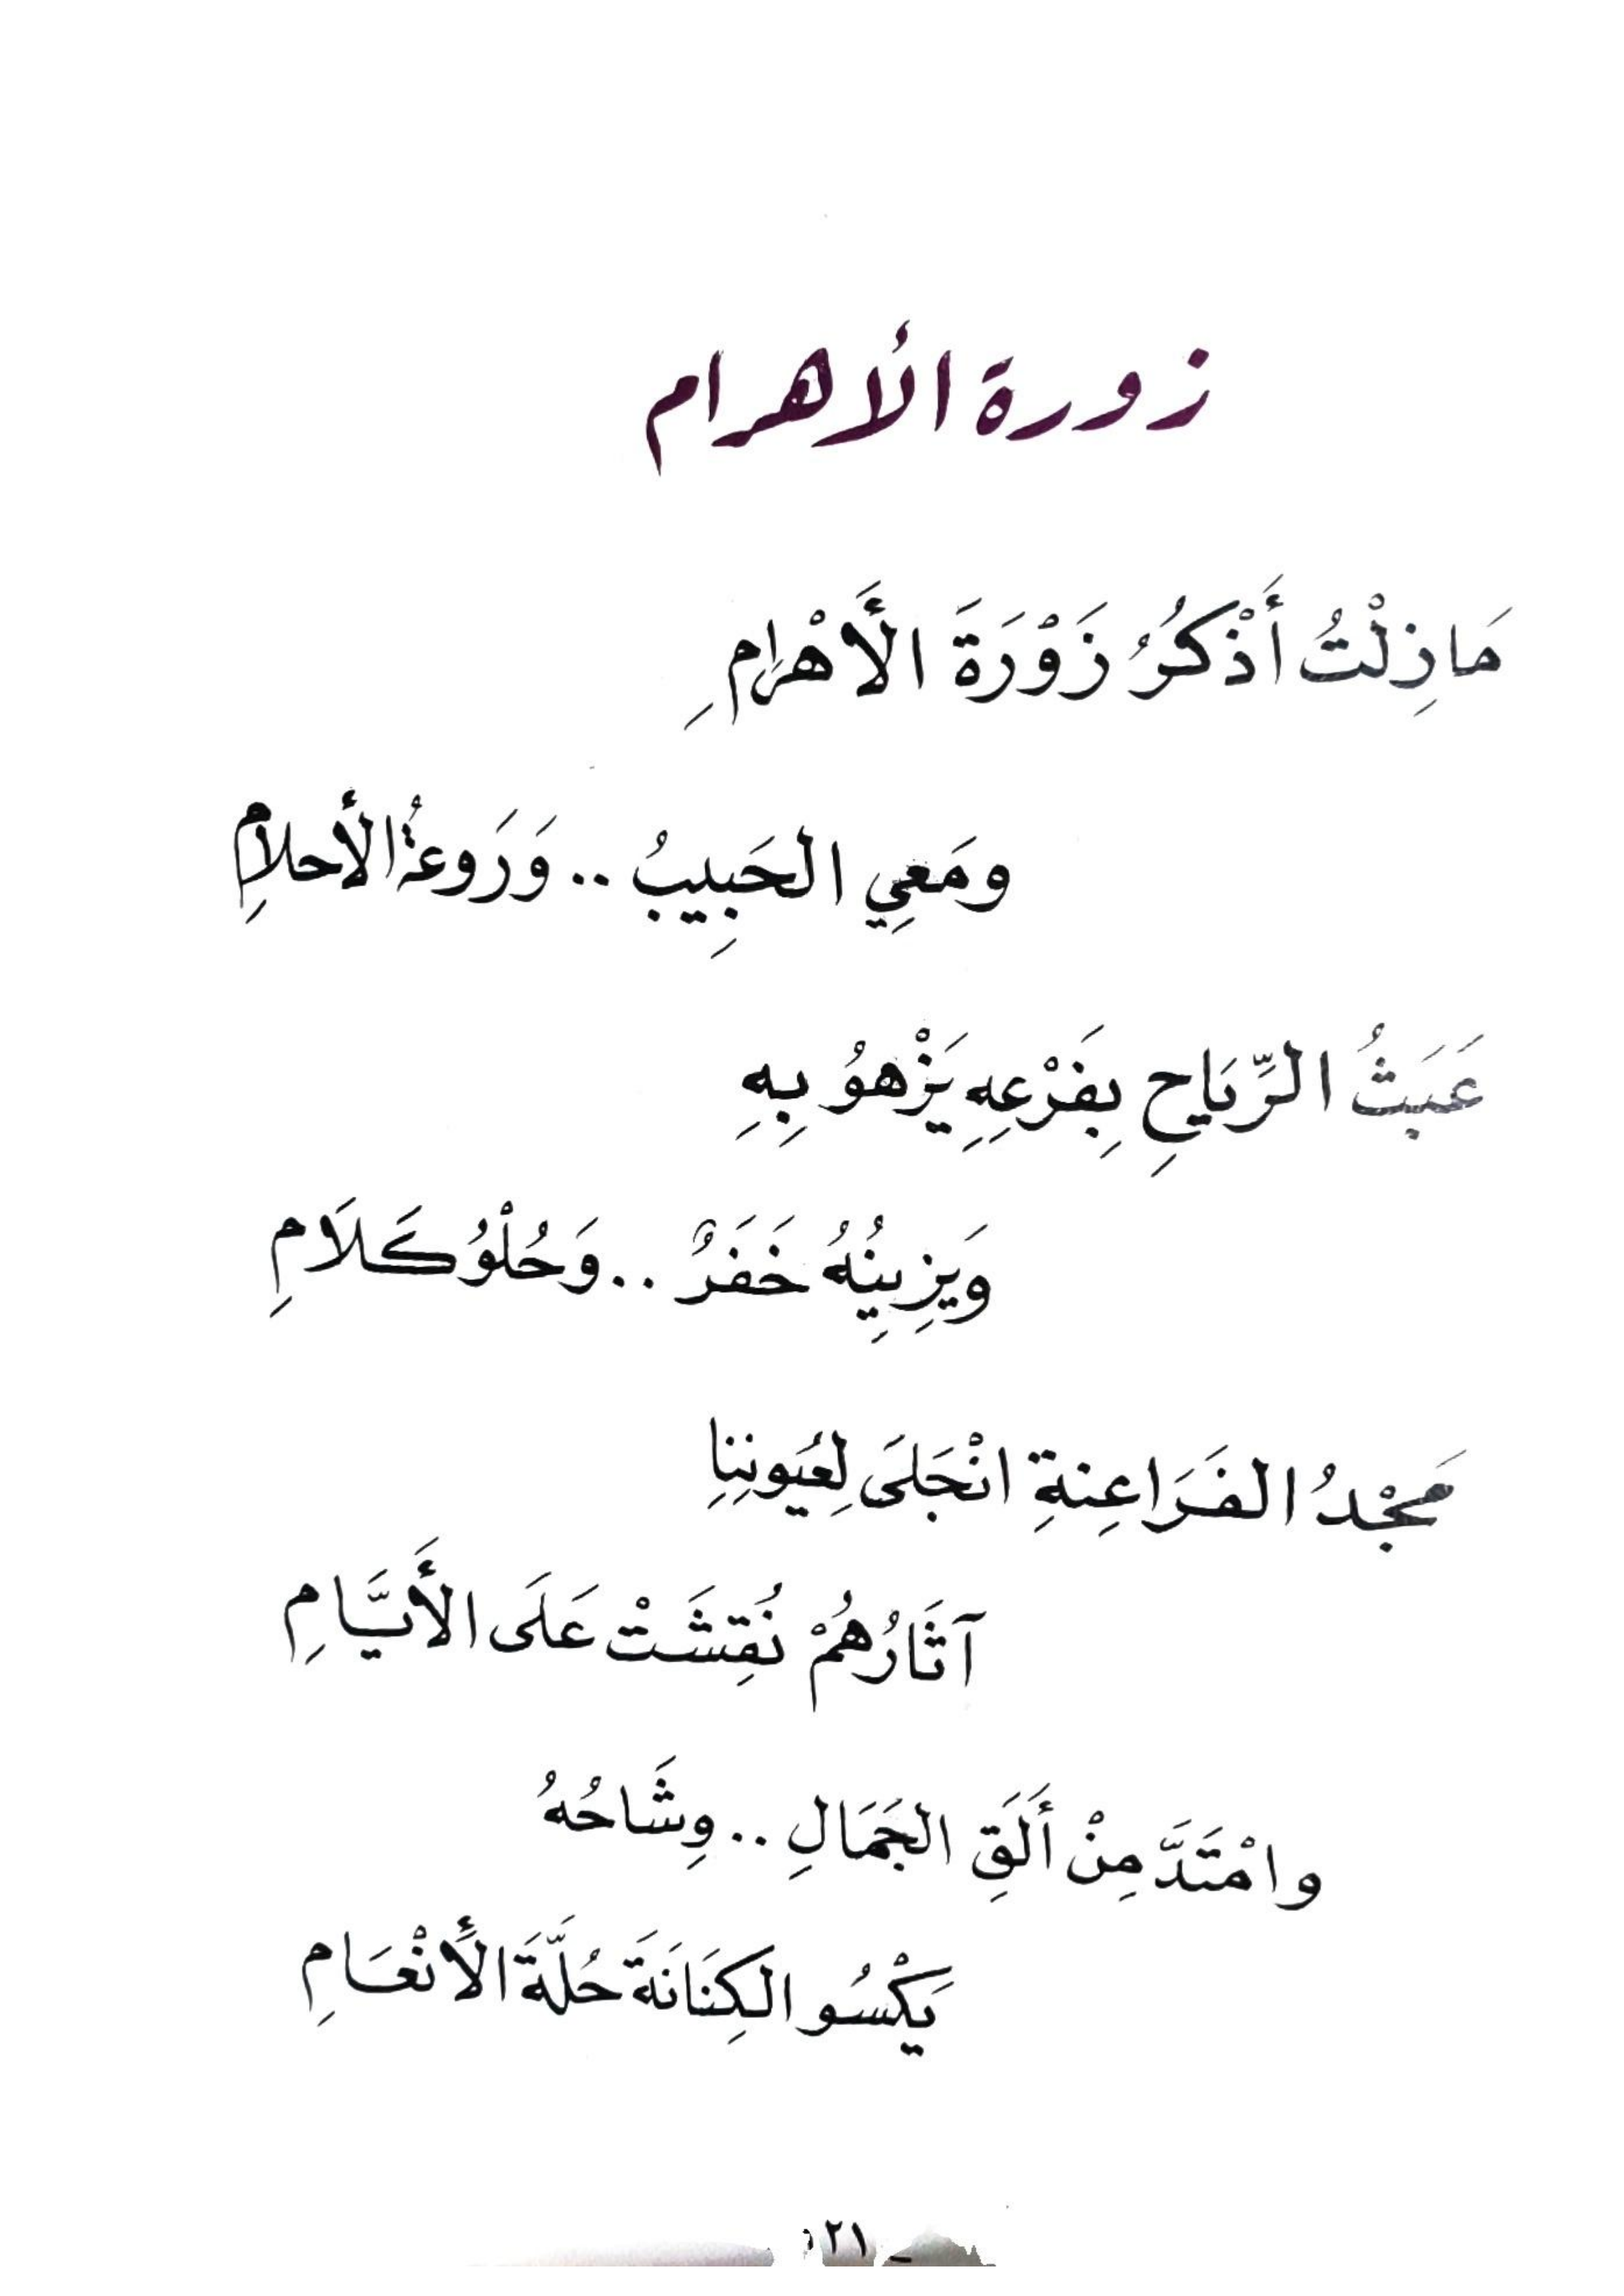 زورة الأهرام
مَازِلْتُ أَذْكُرُ زَوْرَةَ الأَهْرَامِ
ومَعِي الحَبِيبُ .. وَرَوعةُ الأحلامِ
عَبَثُ الرِّيَاحِ بِفَرْعِهِ يَزْهوُ بِهِ
وَيَزِينُهُ خَفَرٌ .. وَحُلْوُ كَلَامِ
مَجْدُ الفَرَاعِنةِ انْجَلَى لِعُيونِنا
آثَارُهُمْ نُقِشَتْ عَلَى الأَيَّامِ
وامْتَدَّ مِنْ أَلَقِ الجَمَالِ .. وِشَاحُهُ
يَكْسُو الكِنَانَةَ حُلَّةَ الأَنْغَامِ
٢١